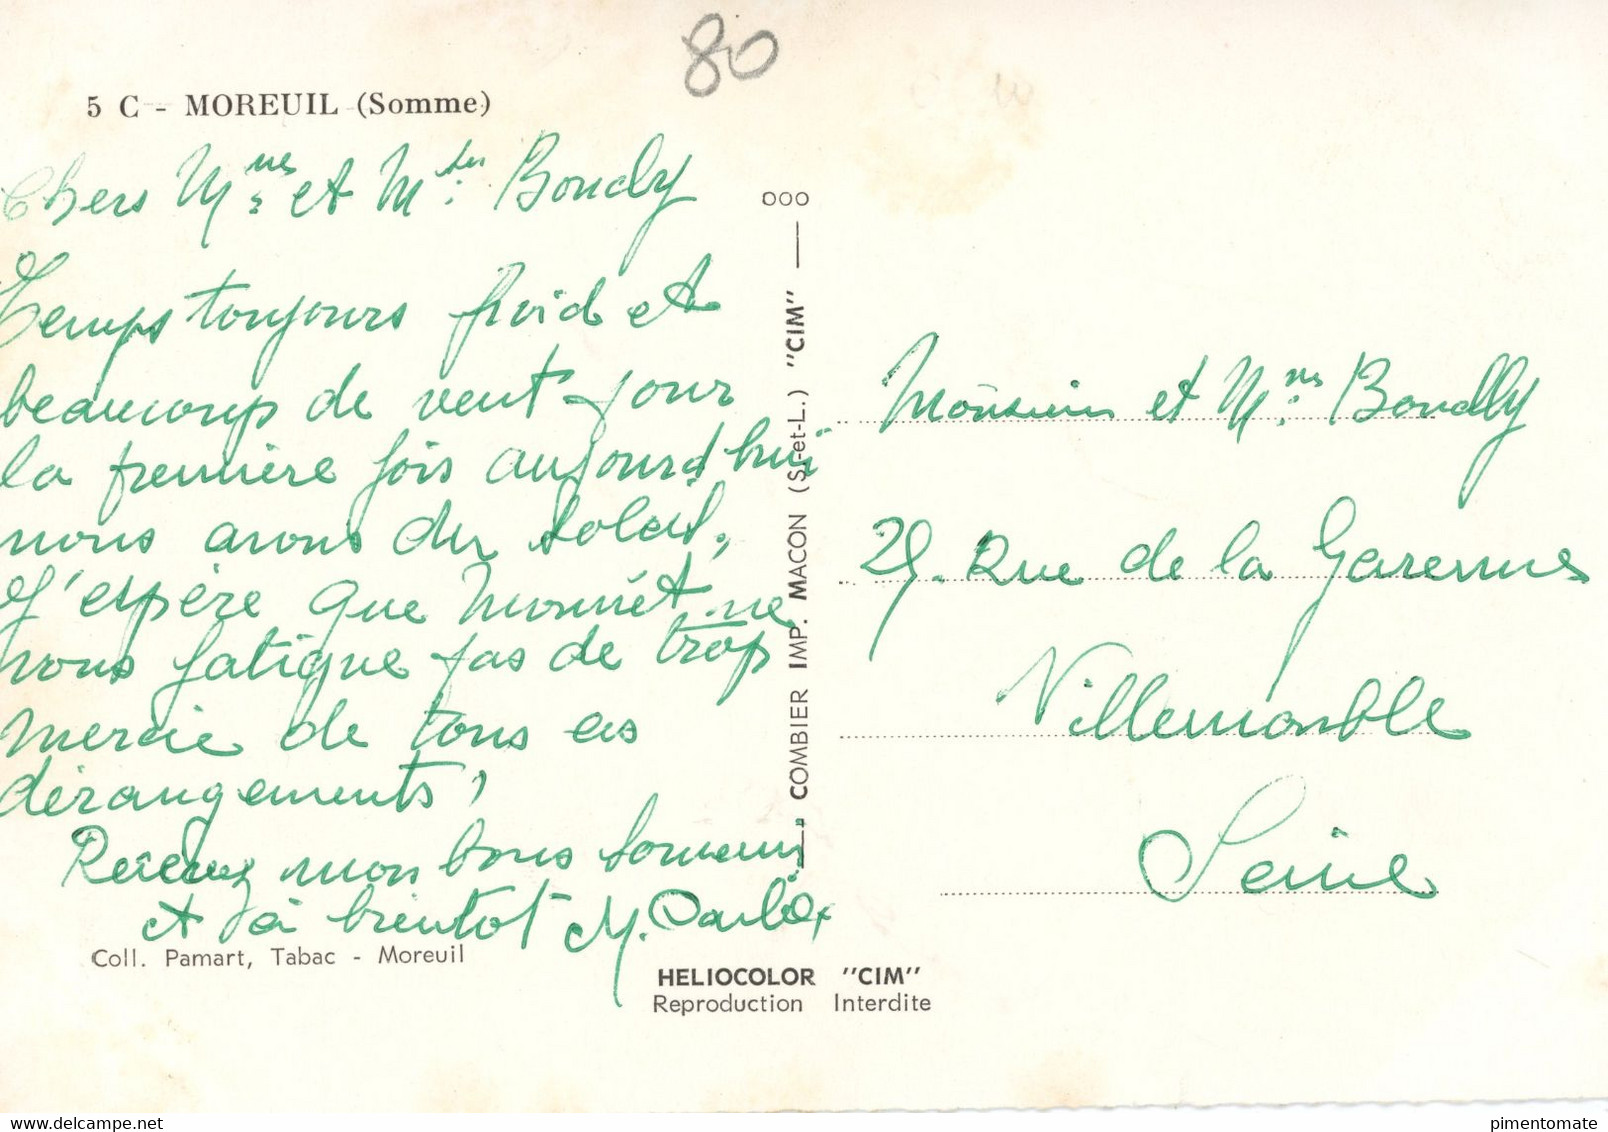 80
5 C - MOREUIL (Somme)
Chers Mmes et M. Boudy
Temps toujours froid et
beaucoup de vent - pour
la première fois aujourd'hui
nous avons du soleil,
J'espère que ne
vous fatigue pas de trop
mercie de tous ces
dérangements,
Recevez mon bons souvenir
et à bientot M.
Coll. Pamart, Tabac - Moreuil
COMBIER IMP. MACON (S.-et-L.) "CIM"
HELIOCOLOR "CIM"
Reproduction Interdite
Monsieur et Mme Boudy
29. Rue de la Garenne
Villemomble
Seine
pimentomate